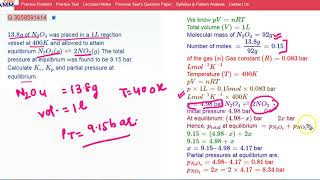 Practice Problem Practice Test Lectures/eNotes Previous Year's Question Paper Syllabus & Pattern Analysis Contact Us
Q.3059591414
13.8g of N₂O₄ was placed in a 1L reaction
vessel at 400K and allowed to attain
equilibrium N₂O₄(g) ⇌ 2NO₂(g) The total
pressure at equilibrium was found to be 9.15 bar.
Calculate Kc, Kp, and partial pressure at
equilibrium.
N₂O₄ = 13.8g T = 400K
vol = 1L
P_T = 9.15 bar.
We know pV = nRT
Total volume (V) = 1L
Molecular mass of N₂O₄ = 92g
Number of moles = 13.8g/92g = 0.15
of the gas (n) Gas constant (R) = 0.083 bar
Lmol⁻¹K⁻¹
Temperature (T) = 400K
pV = nRT
p × 1L = 0.15mol × 0.083 bar
Lmol⁻¹K⁻¹ × 400K
p = 4.98 bar N₂O₄ ⇌ 2NO₂
Initial pressure: 4.98 bar 0
At equilibrium: (4.98−x) bar 2x bar
Hence, p_total at equilibrium = p_N₂O₄ + p_NO₂
9.15 = (4.98−x) + 2x
9.15 = 4.98 + x
x = 9.15 − 4.98 = 4.17 bar
Partial pressures at equilibrium are,
p_N₂O₄ = 4.98 − 4.17 = 0.81 bar
p_NO₂ = 2x = 2 × 4.17 = 8.34 bar